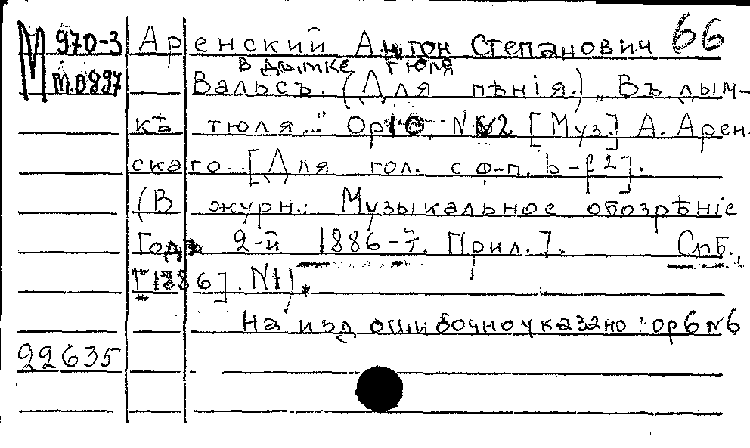 М 970-3 Аренский Антон Степанович 66
в дымке тюля
m0897 Вальсъ. (Для пѣнія.) „Въ дым-
кѣ тюля..." Op10. №2 [Муз.] А. Арен-
скаго. [Для гол. с ф-п. b-f2].
(В журн.: Музыкальное обозрѣніе
Годъ 2-й 1886-7. Прил.]. Спб.,
[1886]. №1).
На изд ошибочно указано: op6 №6
22635